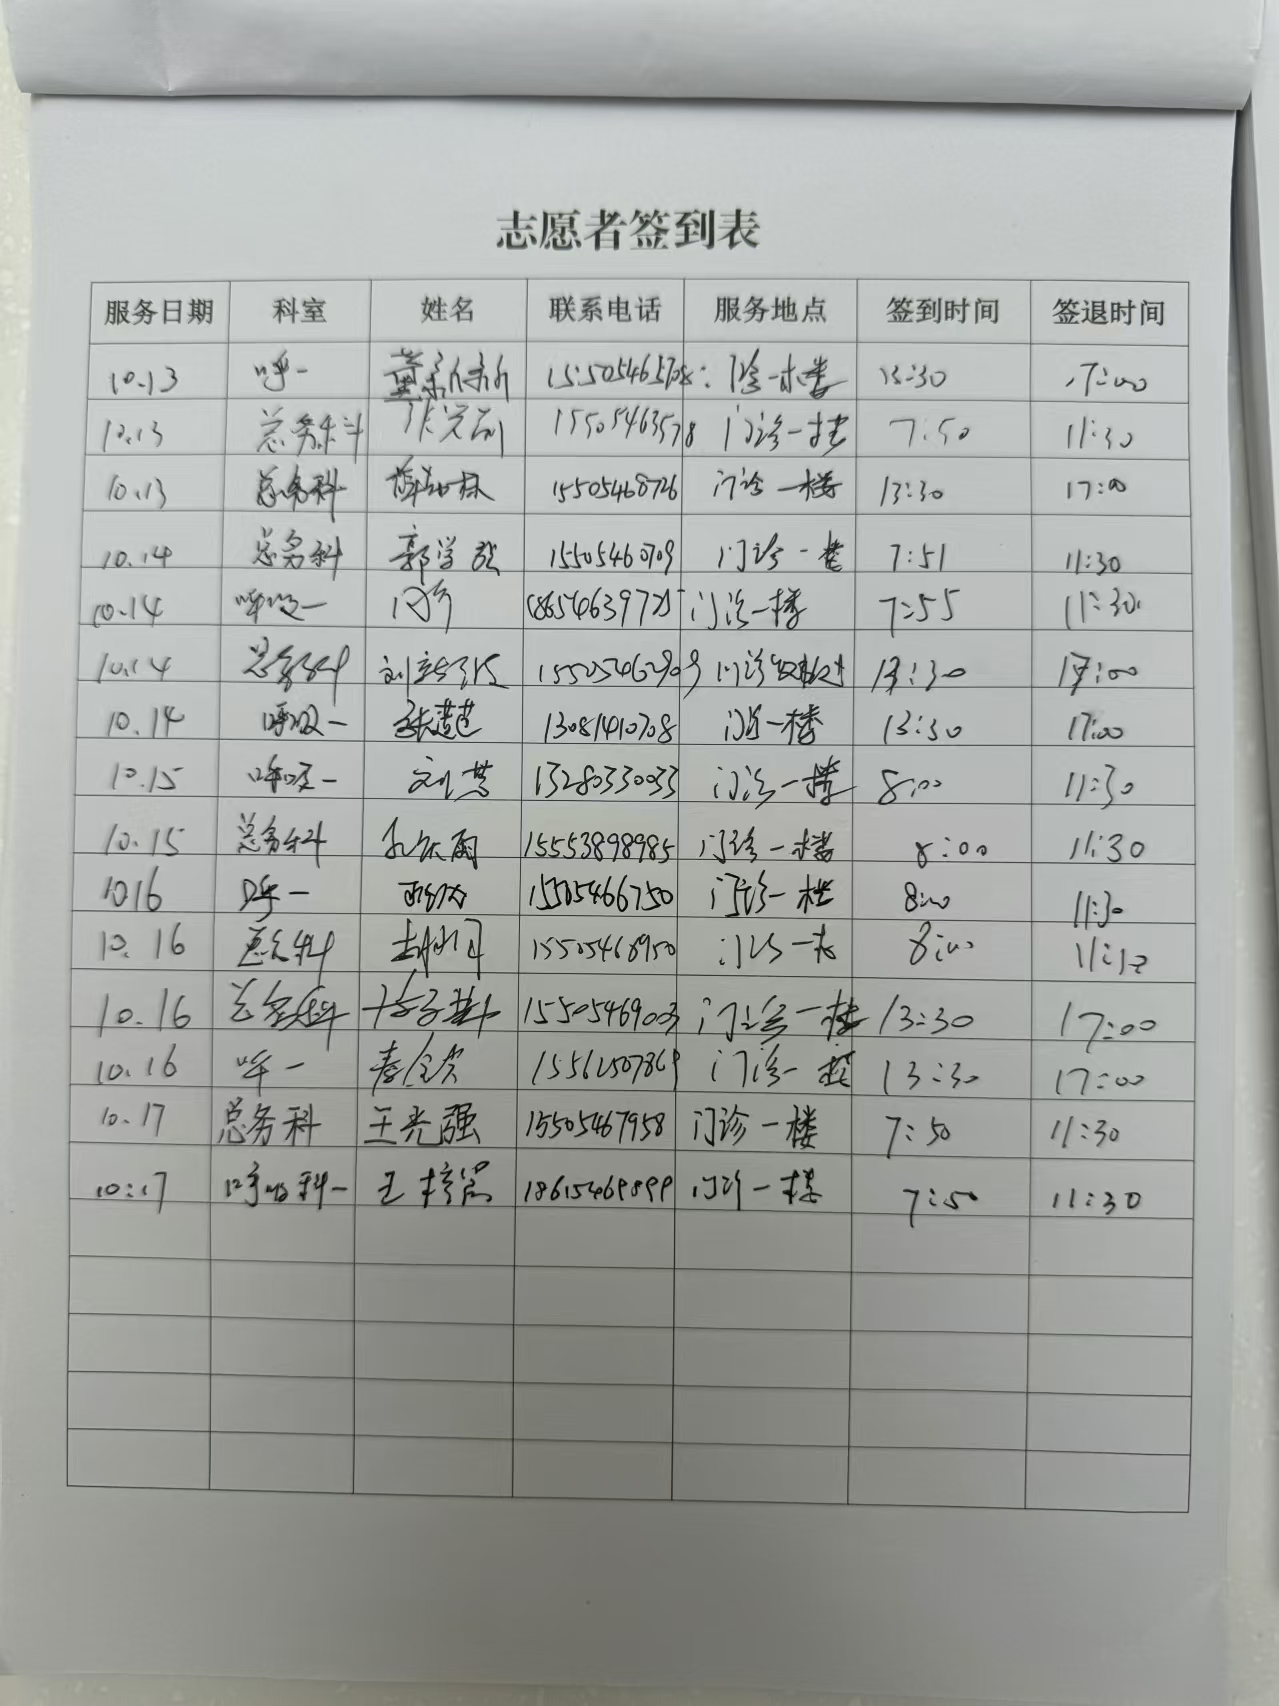 志愿者签到表
服务日期 科室 姓名 联系电话 服务地点 签到时间 签退时间
10.13 呼一 董 门诊一楼 13:30 17:00
10.13 总务科 15505463578 门诊一楼 7:50 11:30
10.13 总务科 15505468726 门诊一楼 13:30 17:00
10.14 总务科 郭学 15505460709 门诊一楼 7:51 11:30
10.14 呼吸一 闫 门诊一楼 7:55 11:30
10.14 总务科 刘 15505462909 门诊 13:30 17:00
10.14 呼吸一 张 13081410708 门诊一楼 13:30 17:00
10.15 呼吸一 刘慧 13280330033 门诊一楼 8:00 11:30
10.15 总务科 孔 15553898985 门诊一楼 8:00 11:30
1016 呼一 15505466750 门诊一楼 8:00 11:30
10.16 总务科 15505468950 门诊一楼 8:00
10.16 总务科 15505469003 门诊一楼 13:30 17:00
10.16 呼一 秦 15562507869 门诊一楼 13:30 17:00
10.17 总务科 王光强 15505467958 门诊一楼 7:50 11:30
10:17 呼吸科一 王 18615469899 门诊一楼 7:50 11:30